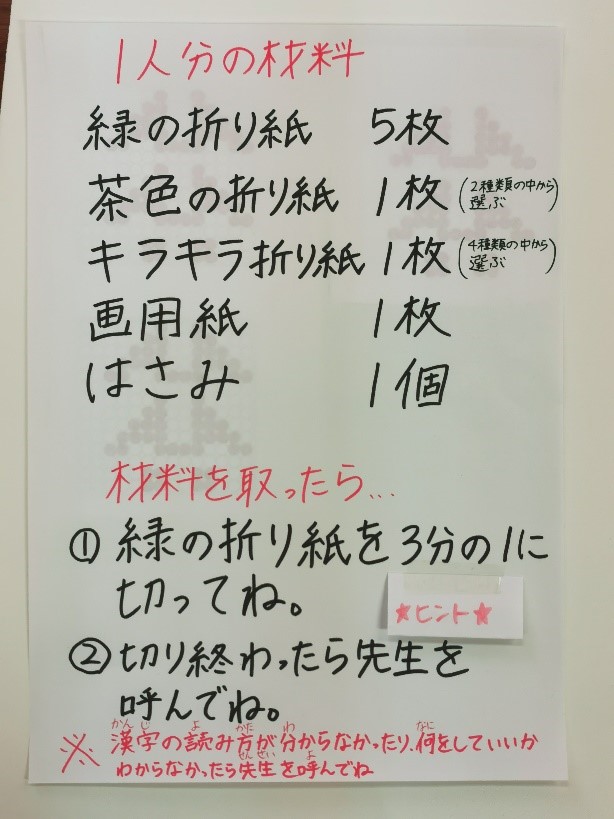 1人分の材料
緑の折り紙 5枚
茶色の折り紙 1枚 (2種類の中から選ぶ)
キラキラ折り紙 1枚 (4種類の中から選ぶ)
画用紙 1枚
はさみ 1個
材料を取ったら...
①緑の折り紙を3分の1に
切ってね。
★ヒント★
②切り終わったら先生を
呼んでね。
かんじ よ かた わ なに
※漢字の読み方が分からなかったり、何をしていいか
せんせい よ
わからなかったら先生を呼んでね